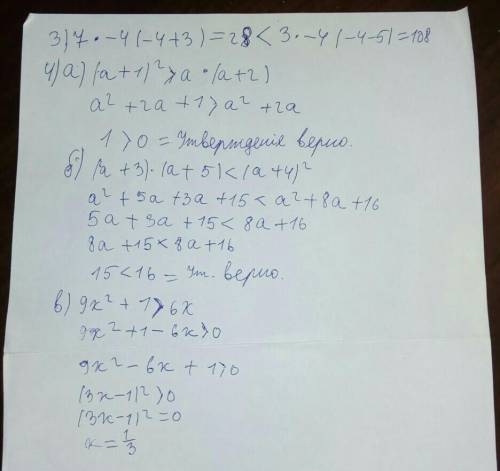 3) 7 · -4 (-4+3) = 28 < 3 · -4 (-4-5) = 108
4) а) (a+1)² > a · (a+2)
a² + 2a + 1 > a² + 2a
1 > 0 = Утверждения верно.
б) (a + 3) · (a + 5) < (a+4)²
a² + 5a + 3a + 15 < a² + 8a + 16
5a + 3a + 15 < 8a + 16
8a + 15 < 8a + 16
15 < 16 = Ут. верно.
в) 9x² + 1 > 6x
9x² + 1 - 6x > 0
9x² - 6x + 1 > 0
(3x - 1)² > 0
(3x - 1)² = 0
x = 1/3